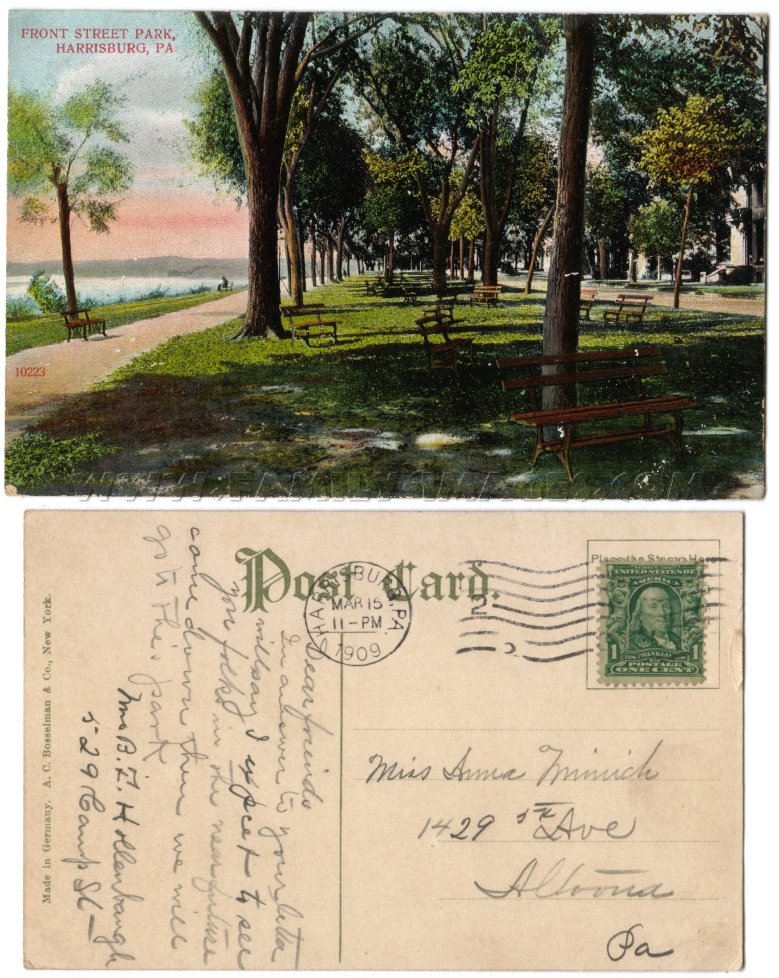 FRONT STREET PARK,
HARRISBURG, PA
10223
Post Card.
Place the Stamp Here
HARRISBURG, PA.
MAR 15
11-PM
1909
2
UNITED STATES OF
AMERICA
FRANKLIN
1 1
POSTAGE
ONE CENT
Made in Germany. A. C. Bosselman & Co., New York.
Dear friends
In answer to your letter
will say I expect to see
you folks in the near future
come down then we will
go to this park
Mrs B. F. Hollenbaugh
529 Camp St
Miss Anna Minich
1429 5th Ave
Altoona
Pa